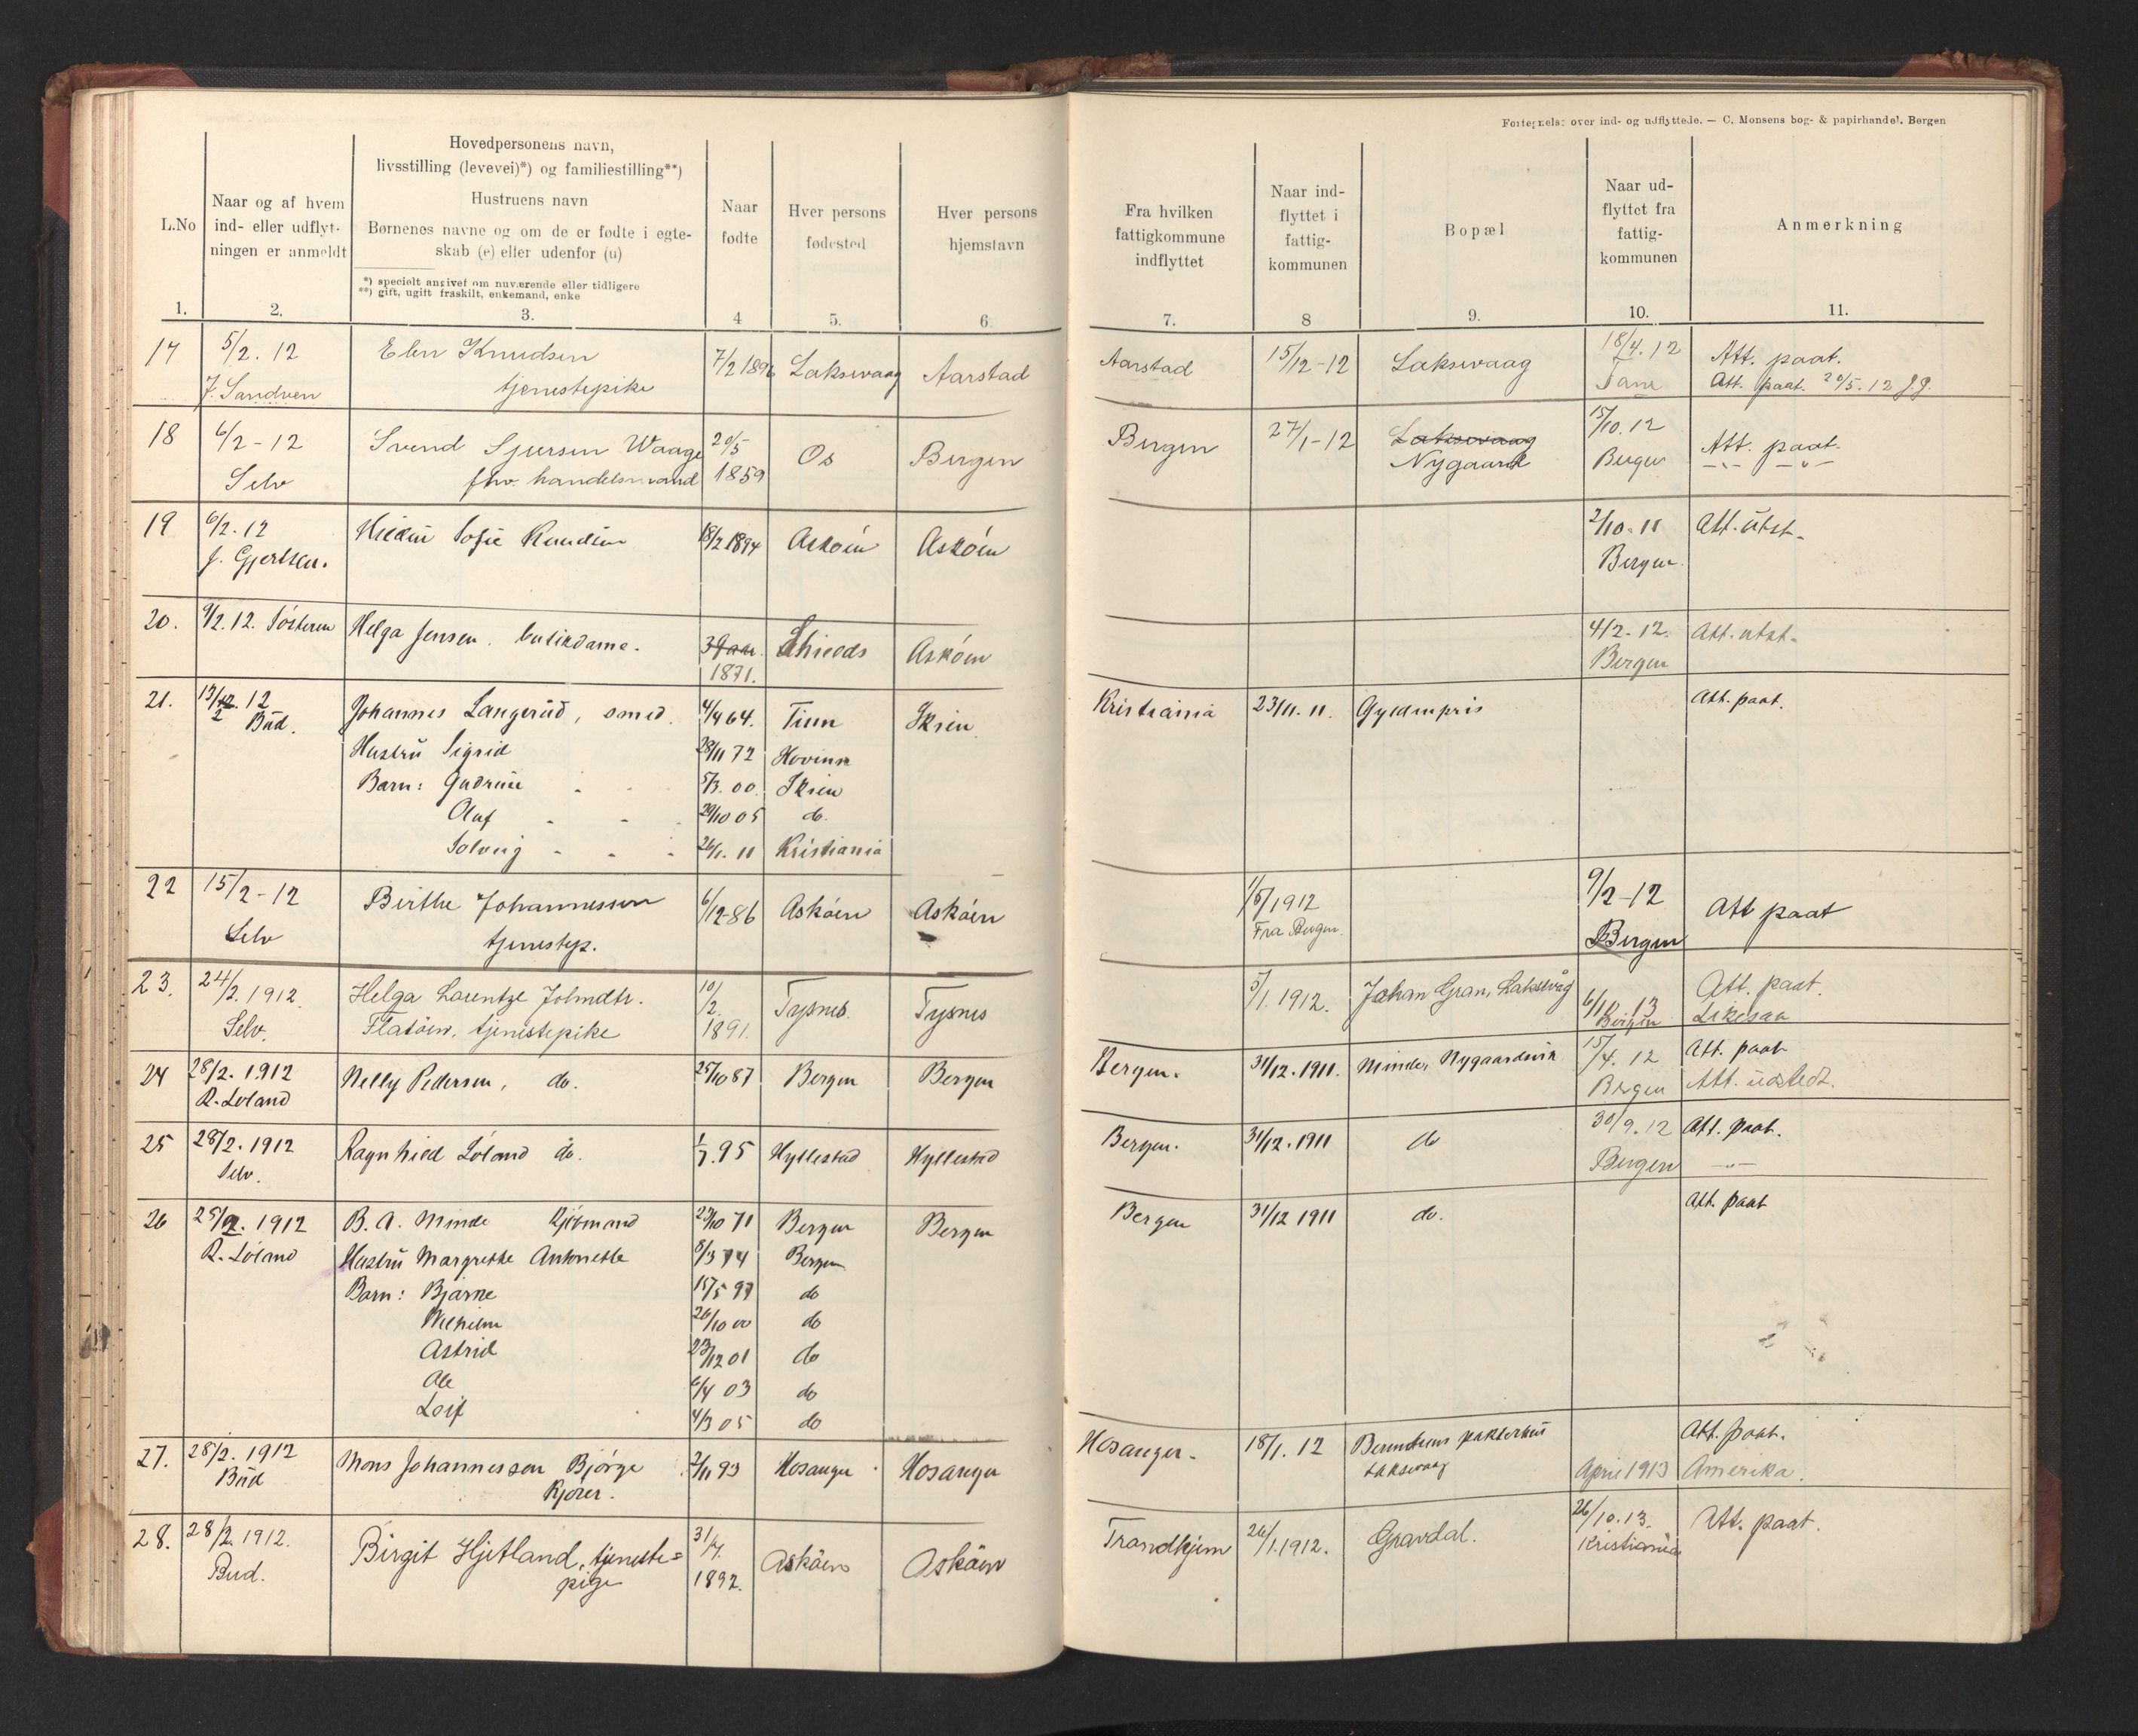 Fortegnelse over ind- og udflyttede. — C. Monsens bog- & papirhandel. Bergen
L.No
Naar og af hvem
ind- eller udflyt-
ningen er anmeldt
Hovedpersonens navn,
livsstilling (levevei)*) og familiestilling**)
Hustruens navn
Børnenes navne og om de er fødte i egte-
skab (e) eller udenfor (u)
*) specielt angivet om nuværende eller tidligere
**) gift, ugift fraskilt, enkemand, enke
Naar
fødte
Hver persons
fødested
Hver persons
hjemstavn
Fra hvilken
fattigkommune
indflyttet
Naar ind-
flyttet i
fattig-
kommunen
Bopæl
Naar ud-
flyttet fra
fattig-
kommunen
Anmerkning
1. 2. 3. 4 5. 6. 7. 8 9. 10. 11.
17 5/2. 12 Elen Knudsen 7/2 1896 Laksevaag Aarstad Aarstad 15/12-12 Laksevaag 18/4. 12 Att. paat.
J. Sandven tjenestepike Att. paat. 20/5. 12
18 6/2-12 Svend Sjursen Waage 20/5 Os Bergen Bergen 27/1-12 Laksevaag 15/10. 12 Att. paat.
Selv fhv. handelsmand 1859 Nygaard Bergen -"- -"-
19 6/2. 12 Sofie Knudsen 18/2 1894 Askøen Askøen 2/10. 11 Att. utst.
J. Gjertsen. Bergen.
20. 9/2. 12. Søsteren Helga Jensen. butikdame. 39 aar. Askøen 4/2. 12. Att. utst.
1871. Bergen
21. 13/2. 12 Johannes Langerud, smed. 4/4 64. Tinn Skien Kristiania 23/11. 11. Gyldenpris Att. paat.
Bud.
Hustru Sigrid 28/11 72
Barn: Gudrun 5/3. 00. Skien
Olaf 29/10 05 do.
Solveig 26/1. 11 Kristiania
22 15/2-12 Birthe Johannessen 6/12-86 Askøen Askøen 1/5/1912 9/2-12 Att paat
Selv tjenestep. Fra Bergen. Bergen
23. 24/2. 1912. Helga Laurentze Johndtr. 10/2. Tysnes Tysnes 5/1. 1912. Johan Gran, Laksevåg 6/10. 13 Att. paat.
Selv. Flatøen, tjenestepike 1891. Bergen Likesaa
24 28/2. 1912 Nelly Pedersen, do. 25/10 87 Bergen Bergen Bergen. 31/12. 1911. Minde, Nygaardsvik 15/4. 12 Att. paat
R. Løland Bergen Att. udstedt.
25 28/2. 1912 Ragnhild Løland do. 1/7. 95 Hyllestad Hyllestad Bergen. 31/12. 1911 do 30/9. 12 Att. paat.
Selv. Bergen -"-
26 28/2. 1912 B. A. Minde Kjøbmand 23/10 71 Bergen Bergen Bergen 31/12 1911 do. Att. paat
R. Løland Hustru Margrethe Antonette 8/3 74 Bergen
Barn: Bjarne 15/5 99 do
Wilhelm 26/10 00 do
Astrid 23/12 01 do
Ole 6/4 03 do
Leif 4/3 05 do
27. 28/2. 1912 Mons Johannessen Bjørge 2/11 93 Hosanger Hosanger Hosanger. 18/1. 12 Berentsens pakterhus Att. paat.
Bud Kjører. Laksevaag April 1913 Amerika.
28. 28/2. 1912. Birgit Hjetland, tjeneste= 31/7. Askøen Askøen Trondhjem 26/1. 1912. Gravdal. 26/10. 13. Att. paat.
Bud. pige 1892. Kristiania